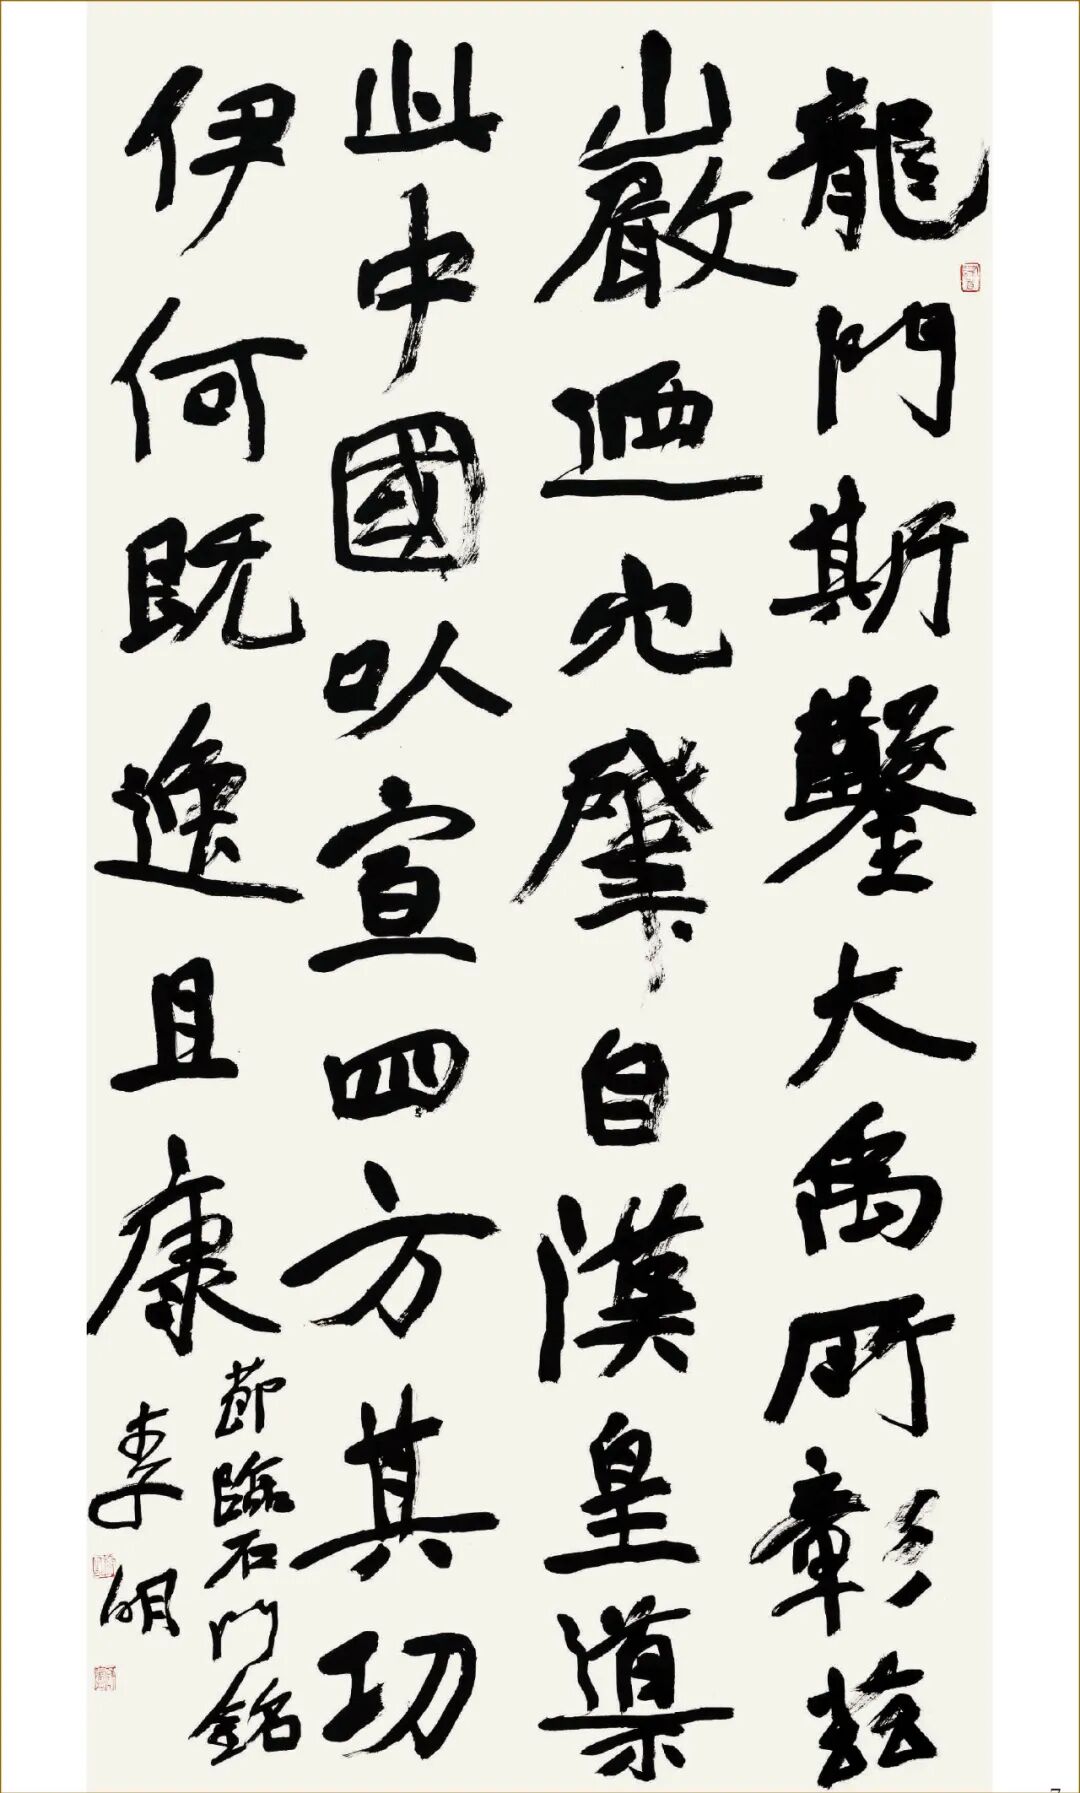 龍門斯鑿大禹所彰茲
巖迺穴肇自漢皇導
此中國㕥宣四方其功
伊何既逸且康
節臨石門銘
李明